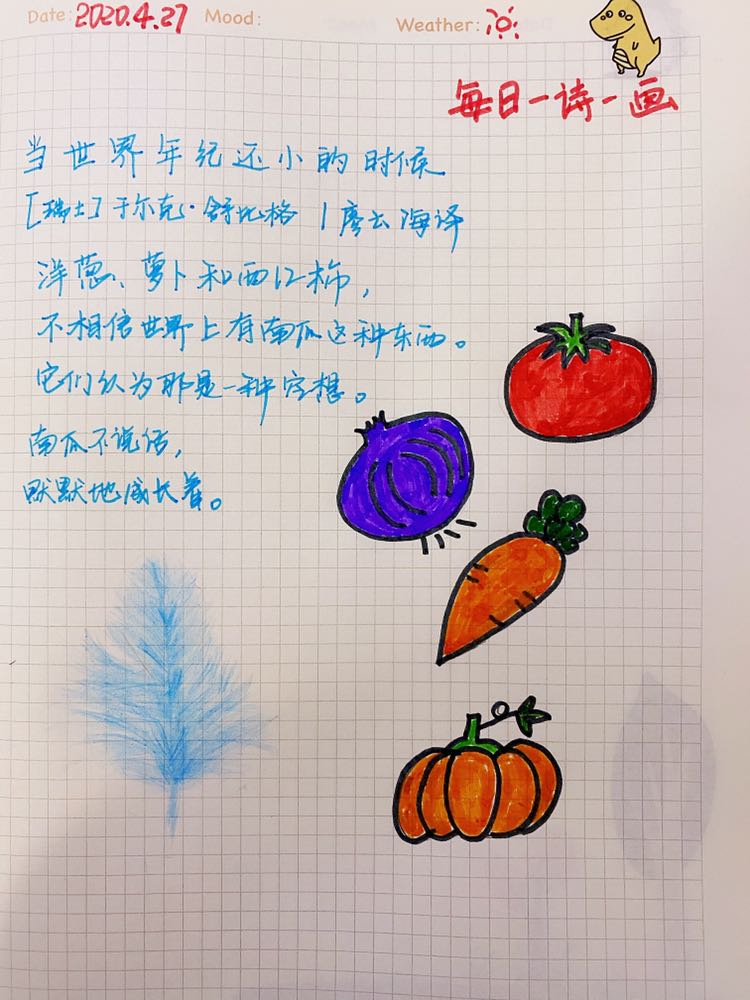 Date: 2020.4.27 Mood: Weather:
每日一诗一画
当世界年纪还小的时候
[瑞士]于尔克·舒比格 | 廖云海译
洋葱、萝卜和西红柿,
不相信世界上有南瓜这种东西。
它们认为那是一种空想。
南瓜不说话,
默默地成长着。